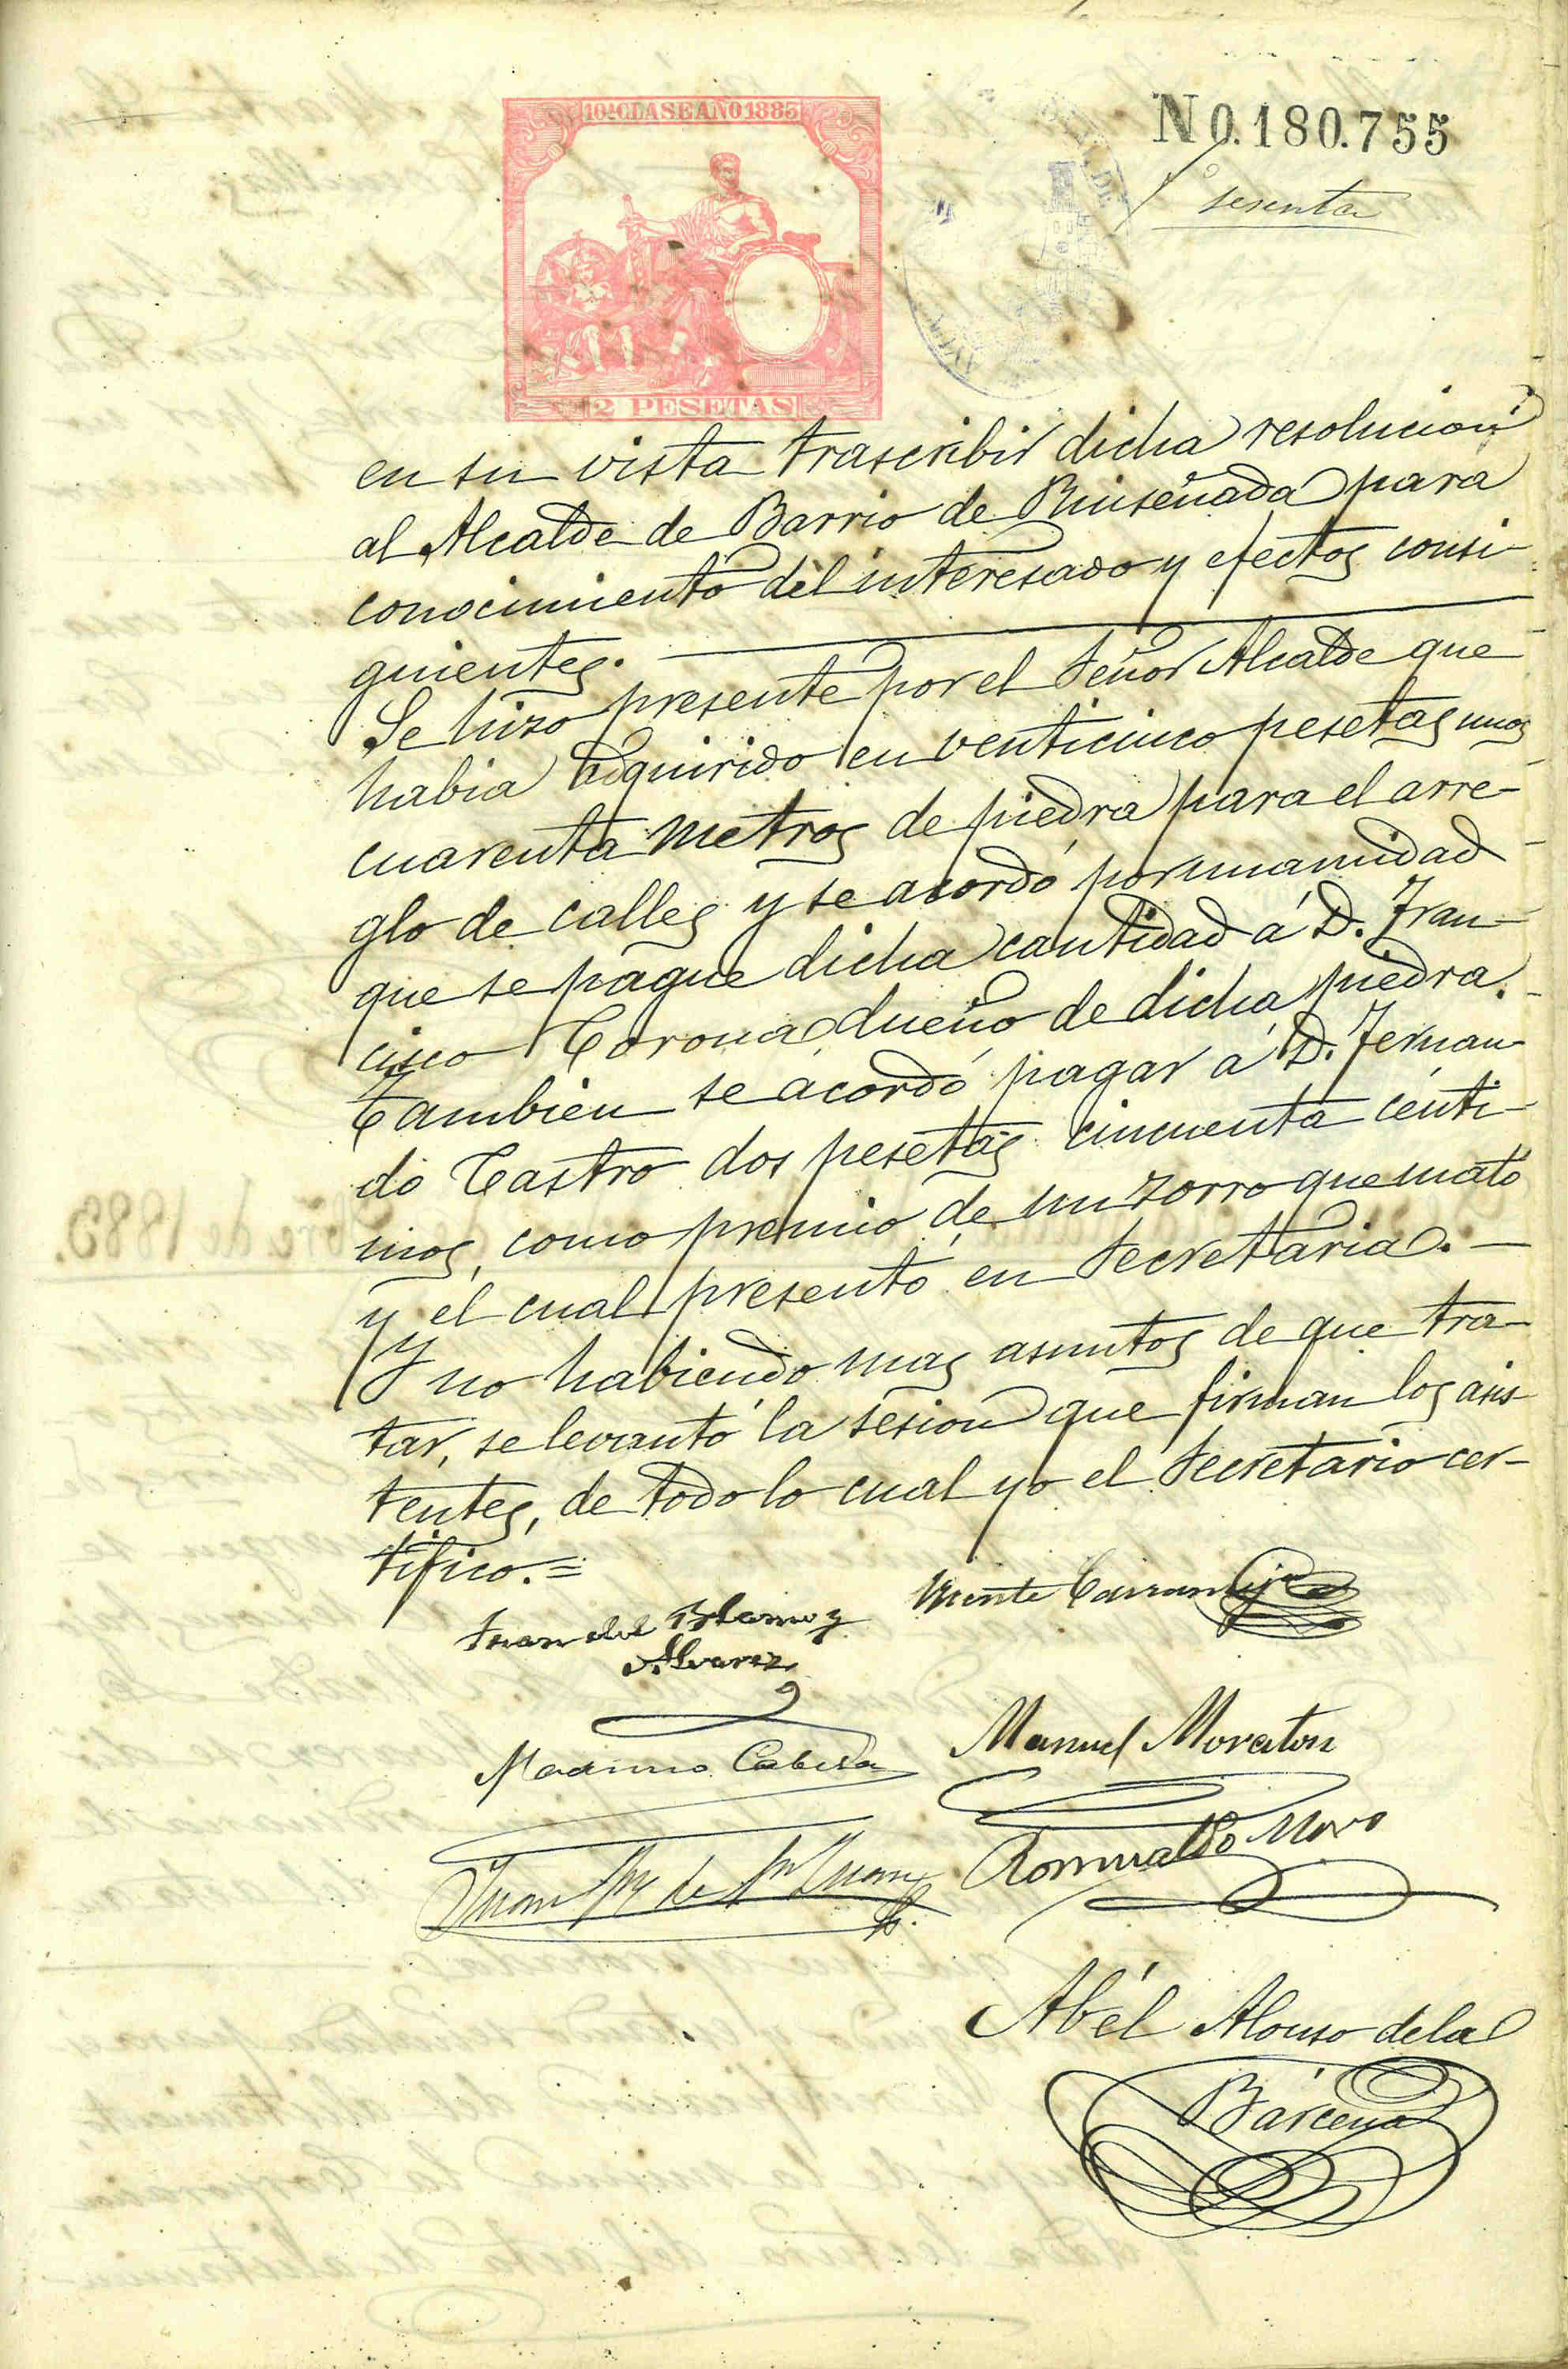 10ª CLASE AÑO 1885
N 0.180.755
sesenta
2 PESETAS
en su vista trascribir dicha resolucion
al Alcalde de Barrio de Ruiseñada para
conocimiento del interesado y efectos consi-
guientes.
Se hizo presente por el Señor Alcalde que
habia adquirido en venticinco pesetas unos
cuarenta metros de piedra para el arre-
glo de calles y se acordó por unanimidad
que se pague dicha cantidad á D. Fran-
cisco Corona dueño de dicha piedra.
Tambien se acordó pagar á D. Fernan-
do Castro dos pesetas cincuenta cénti-
mos, como premio de un zorro que mató
y el cual presentó en Secretaria. —
Y no habiendo mas asuntos de que tra-
tar, se levantó la sesion que firman los asis-
tentes, de todo lo cual yo el Secretario cer-
tifico. =
Juan del Blanco y
Alvarez
Vicente
Maximo Cabeza
Manuel Moraton
Juan de
Romualdo Moro
Abél Alonso de la
Bárcena